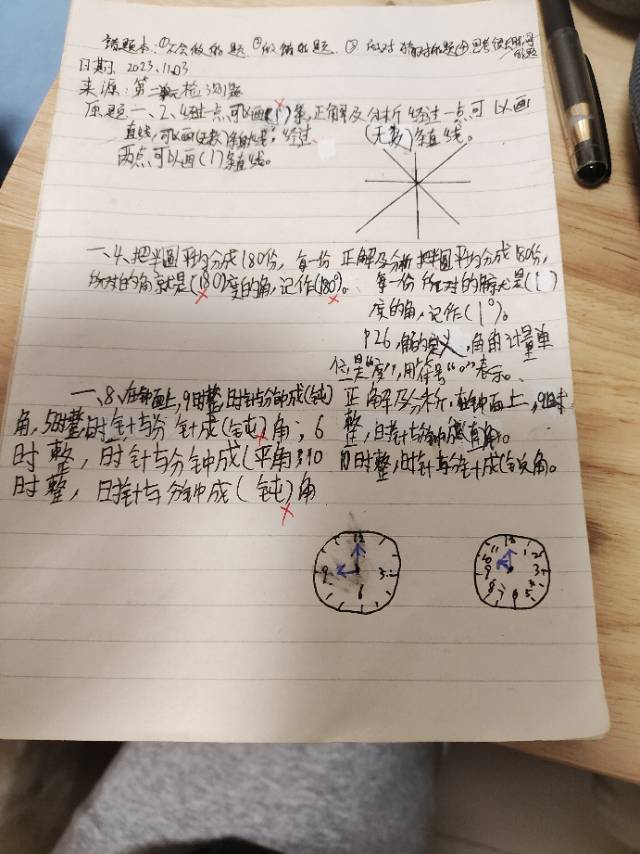 错题本：①不会做的题 ②做错的题 ③
日期：2023.11.03
来源：第二单元检测题
原题一、2、经过一点可以画(1)条, 正解及分析 经过一点可以画
直线,可以画(无数)条曲线；经过 (无数)条直线。
两点可以画(1)条直线。
一、4、把半圆平均分成180份，每一份 正解及分析 把半圆平均分成180份，
所对的角就是(180)度的角,记作(180°)。 每一份所对的角就是(1)
度的角,记作(1°)。
P26,角的定义,角的计量单
位是"度",用符号"°"表示。
一、8、在钟面上,9时整,时针与分钟成(钝) 正解及分析：在钟面上,9时
角,5时整,时针与分针成(钝)角；6 整,时针与分钟成直角。
时整，时针与分钟成(平角);10 10时整,时针与分针成锐角。
时整，时针与分钟成(钝)角
12 3 6 9
12 1 2 3 4 5 6 7 8 9 10 11